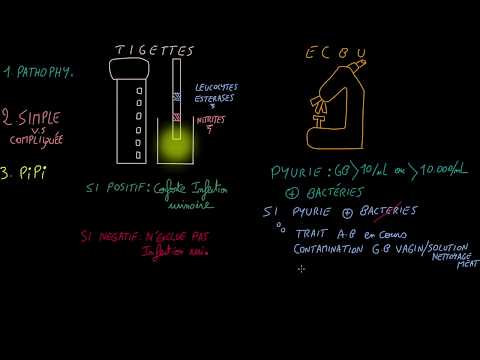 TIGETTES
ECBU
1. PATHOPHY.
2. SIMPLE
V.S
COMPLIQUÉE
3. PiPi
LEUCOCYTES
ESTERASES
NITRITES
SI POSITIF: Conforte Infection
urinaire
SI NEGATIF: N'EXCLUE PAS
Infection uri.
PYURIE: GB > 10/mL ou > 10.000/mL
⊕ BACTÉRIES
SI PYURIE ⊕ BACTÉRIES
TRAIT A.B en cours
CONTAMINATION G.B VAGIN/SOLUTION
NETTOYAGE
MEAT